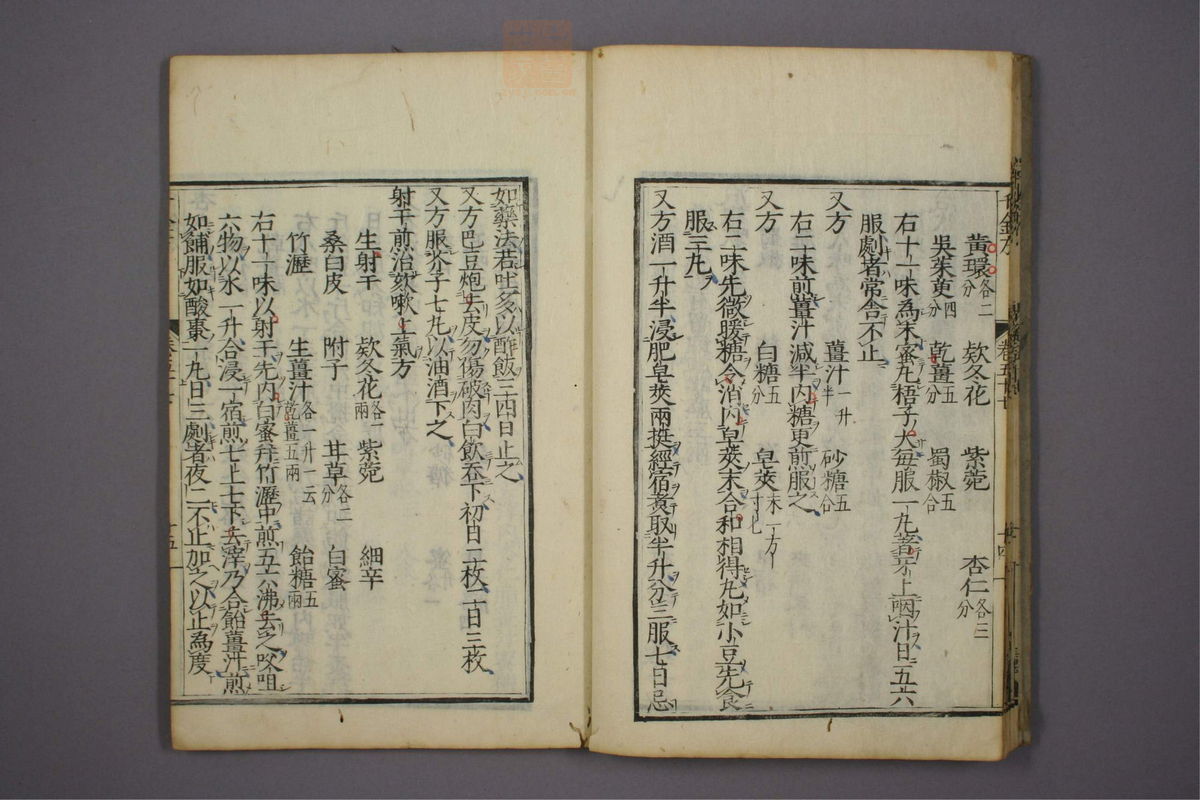 黃環各二分　欵冬花　紫菀　杏仁各三分
吳茱萸四分　乾薑五分　蜀椒五合
右十一味為末蜜丸梧子大每服一丸著牙上咽汁日五六
服劇者常含不止
又方　薑汁一升半　砂糖五合
右二味煎薑汁減半內糖更煎服之
又方　白糖五分　皂莢末一方寸匕
右二味先微暖糖令消內皂莢末合和相得丸如小豆先食
服三丸
又方酒一升半浸肥皂莢兩挺經宿煑取半升分三服七日忌
如藥法若吐多以酢飯三四日止之
又方巴豆炮去皮勿傷破肉白飲吞下初日二枚二日三枚
又方服芥子七丸以油酒下之
射干煎治欬嗽上氣方
生射干　欵冬花各一兩　紫菀　細辛
桑白皮　附子　甘草各二分　白蜜
竹瀝　生薑汁各一升一云乾薑五兩　飴糖五兩
右十一味以射干先內白蜜并竹瀝中煎五六沸去之㕮咀
六物以水一升合浸一宿煎七上七下去滓乃合飴薑汁煎
如餔服如酸棗一丸日三劇者夜二不止加之以止為度